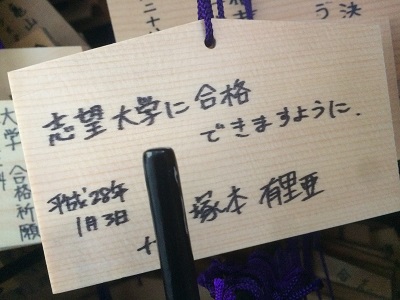 志望大学に合格
できますように.
平成28年
1月3日
塚本 有里亜
大学
合格祈願